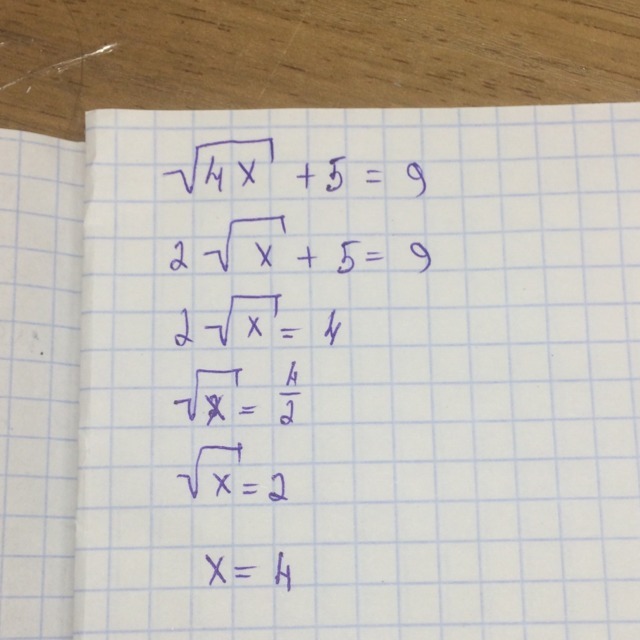 √4x + 5 = 9
2√x + 5 = 9
2√x = 4
√x = 4/2
√x = 2
x = 4